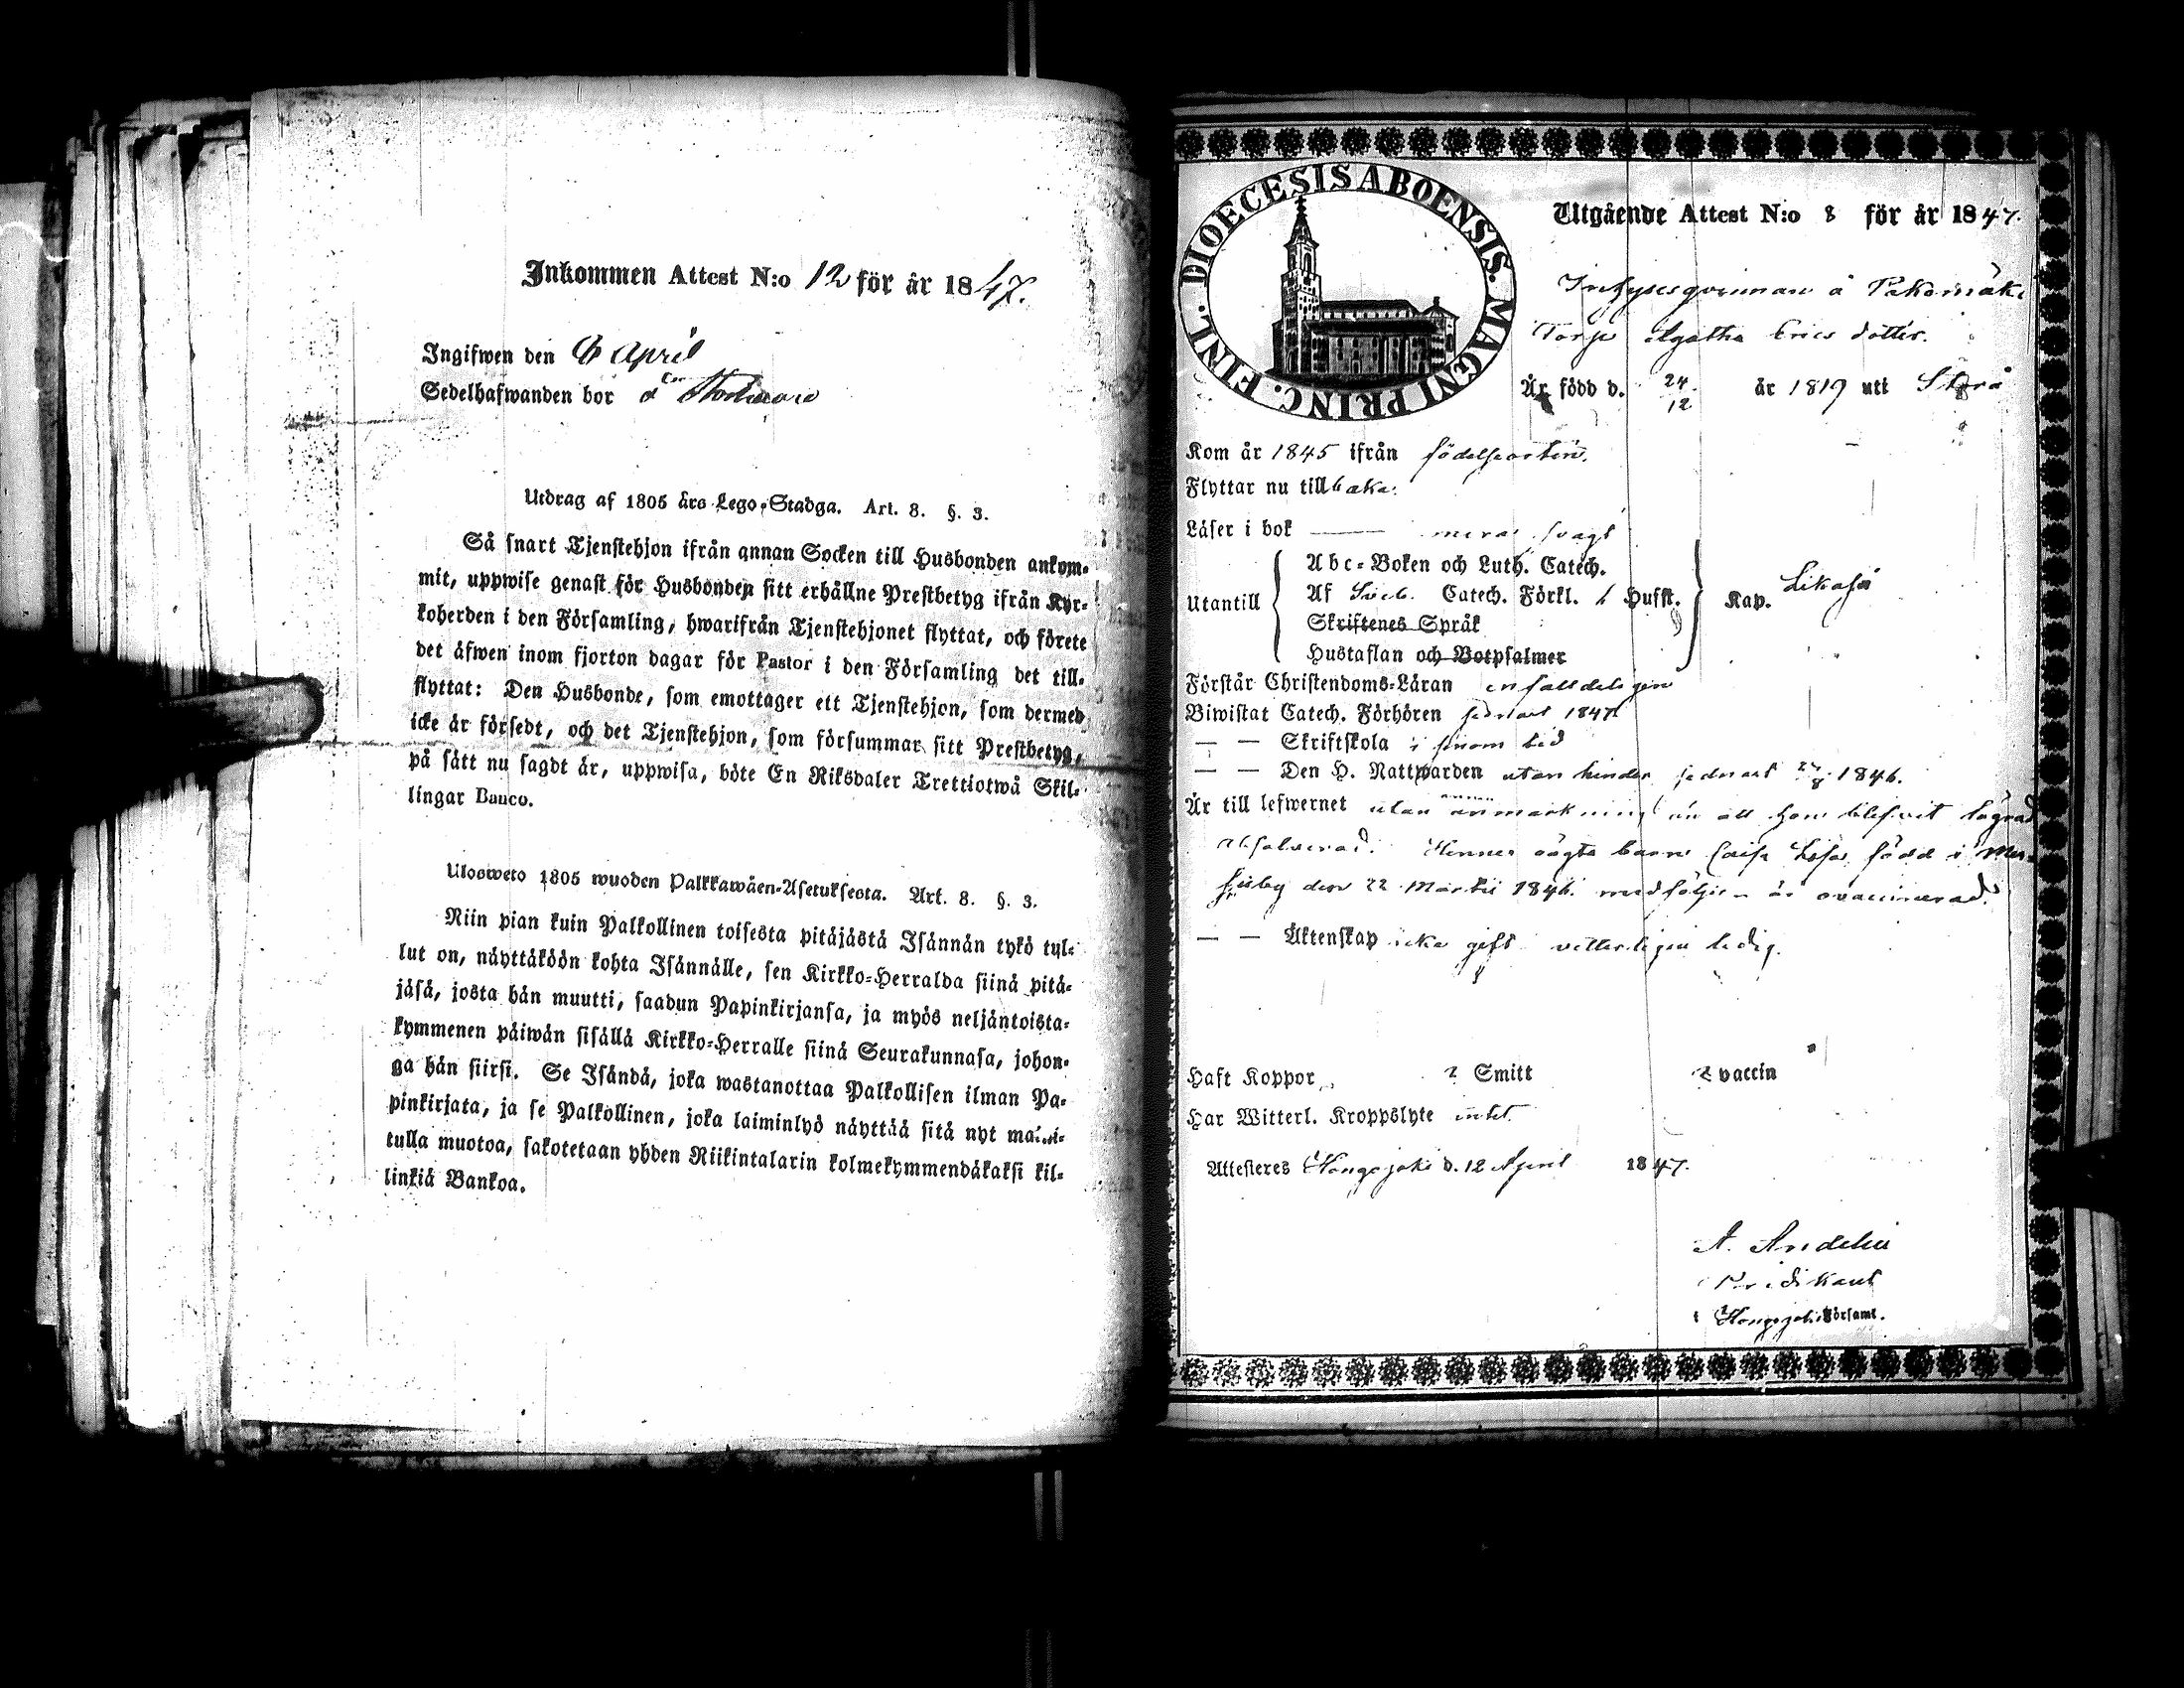 Inkommen Attest N:o 12 för år 1847.
Ingifwen den April
Sedelhafwanden bor å
Utdrag af 1805 års Lego-Stadga. Art. 8. §. 3.
Så snart Tjenstehjon ifrån annan Socken till Husbonden ankom-
mit, uppwise genast för Husbonden sitt erhållne Prestbetyg ifrån Kyr-
koherden i den Församling, hwarifrån Tjenstehjonet flyttat, och förete
det äfwen inom fjorton dagar för Pastor i den Församling det till-
flyttat: Den Husbonde, som emottager ett Tjenstehjon, som dermed
icke är försedt, och det Tjenstehjon, som försummar sitt Prestbetyg,
på sätt nu sagdt är, uppwisa, böte En Riksdaler Trettiotwå Skil-
lingar Banco.
Ulosweto 1805 wuoden Palkkawäen-Asetuksesta. Art. 8. §. 3.
Niin pian kuin Palkollinen toisesta pitäjästä Isännän tykö tul-
lut on, näyttäköön kohta Isännälle, sen Kirkko-Herralda siinä pitä-
jäsä, josta hän muutti, saadun Papinkirjansa, ja myös neljäntoista-
kymmenen päiwän sisällä Kirkko-Herralle siinä Seurakunnasa, johon-
ga hän siirsi. Se Isändä, joka wastanottaa Palkollisen ilman Pa-
pinkirjata, ja se Palkollinen, joka laiminlyö näyttää sitä nyt maini-
tulla muotoa, sakotetaan yhden Riikintalarin kolmekymmendäkaksi kil-
linkiä Bankoa.
DIOECESIS ABOENSIS. MAGNI PRINC. FINL.
Utgående Attest N:o 8 för år 1847.
Inhysesqvinnan å Pakamäki
Torp Agatha Ericsdotter.
Är född d. 24/12 år 1819 uti Storå
Kom år 1845 ifrån födelseorten.
Flyttar nu tillbaka.
Läser i bok — svagt
Utantill
Abc-Boken och Luth. Catech.
Af Catech. Förkl. Husft.
Skriftenes Språk
Hustaflan och Botpsalmer
Kap. Likaså
Förstår Christendoms-Läran enfaldeligen
Biwistat Catech. Förhören sednast 1847
— — Skriftskola i sinom tid
— — Den H. Nattwarden utan hinder sednast 1846.
Är till lefwernet utan annan anmärkning än att hon blifvit lägrad
absolverad. Hennes oägta barn Caisa Lisa född i Mer-
den 22 Martii 1846. medföljer är ovaccinerad.
— — Äktenskap icke gift vitterligen ledig.
Haft Koppor ? Smitt ? vaccin
Har Witterl. Kroppslyte intet
Attesteras Hongojoki d. 12 April 1847.
A. Andelin
Predikant
i Hongojoki Församl.